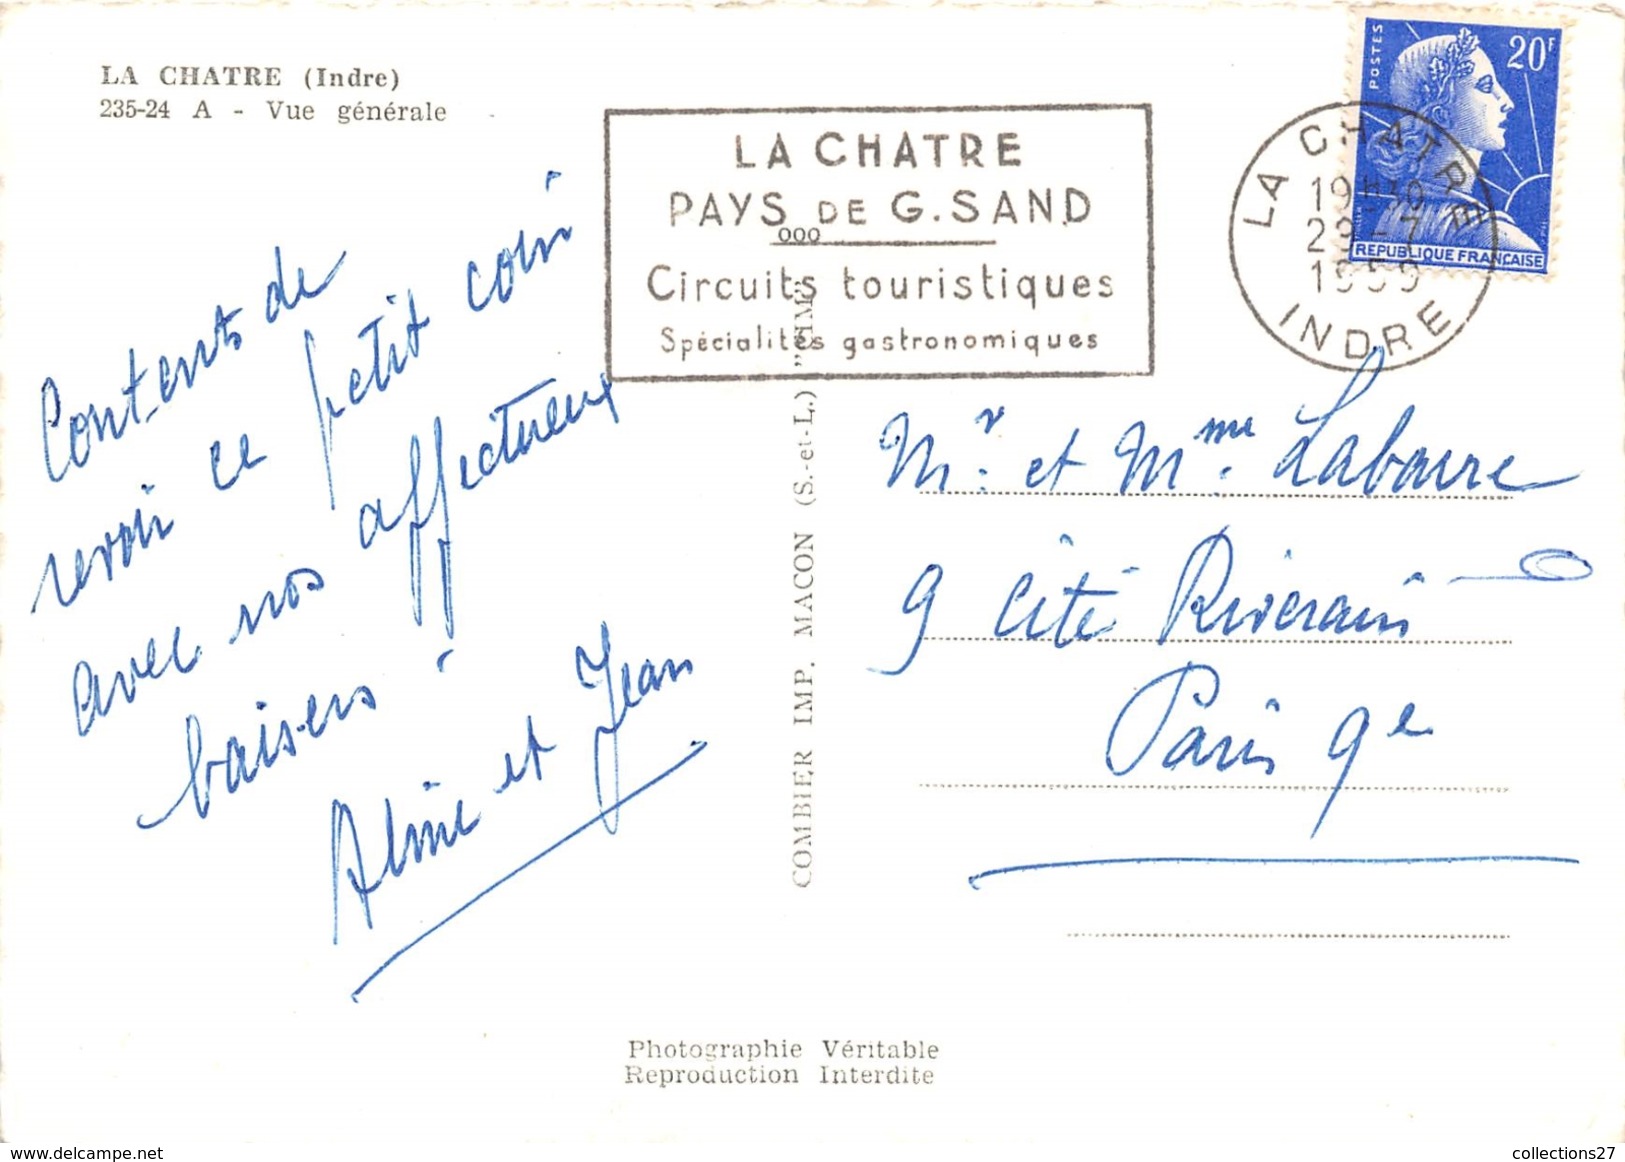 LA CHATRE (Indre)
235-24 A - Vue générale
LA CHATRE
PAYS DE G. SAND
ooo
Circuits touristiques
Spécialités gastronomiques
LA CHATRE
19H30
29-7
1959
INDRE
POSTES
20F
REPUBLIQUE FRANCAISE
Contents de
revoir ce petit coin
avec nos affectueux
baisers
Aline et Jean
COMBIER IMP. MACON (S.-et-L.) "CIM"
Mr. et Mme. Labarre
9 Cité Riverain
Paris 9e
Photographie Véritable
Reproduction Interdite
http://www.delcampe.net
collections27